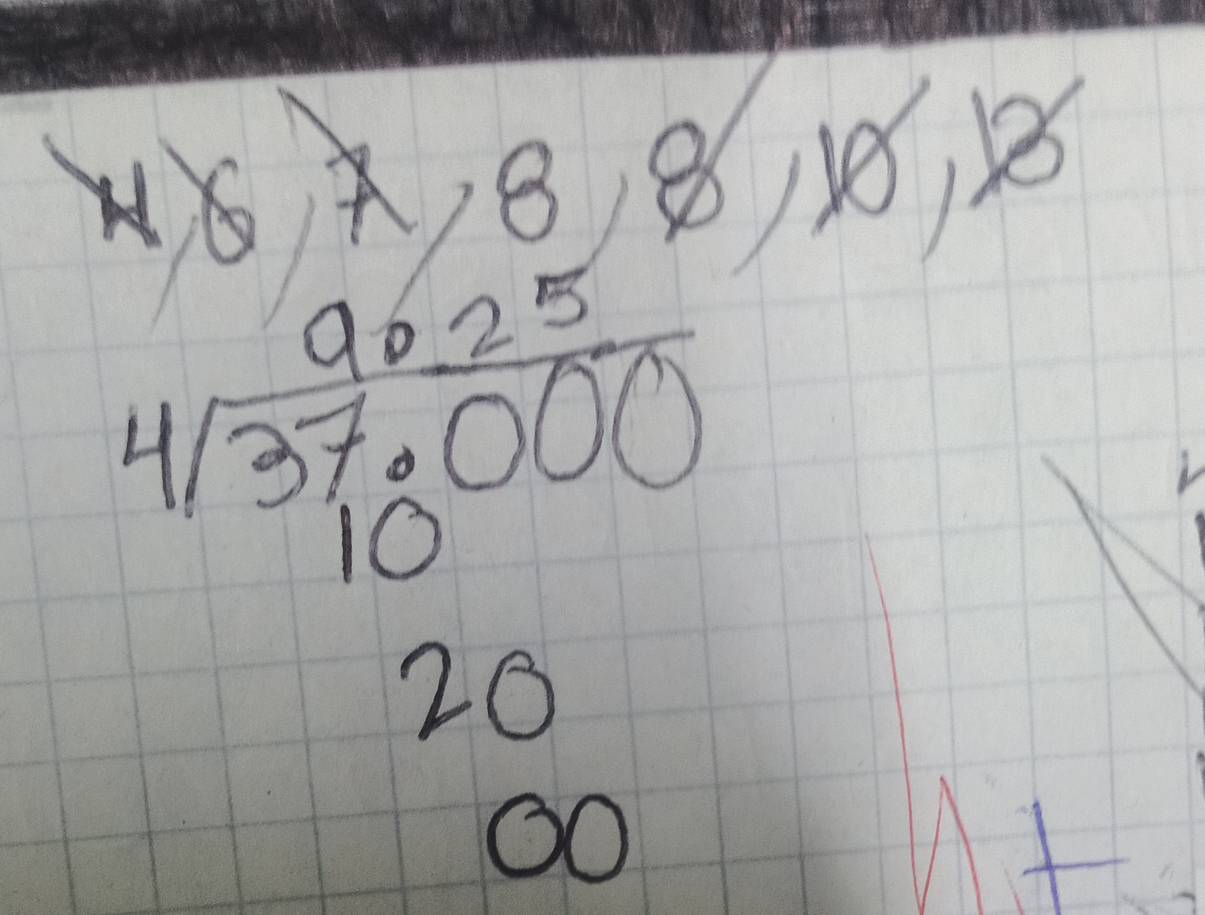 4, 6, 7, 8, 8, 10, 13
9.25
4√37.000
10
20
00